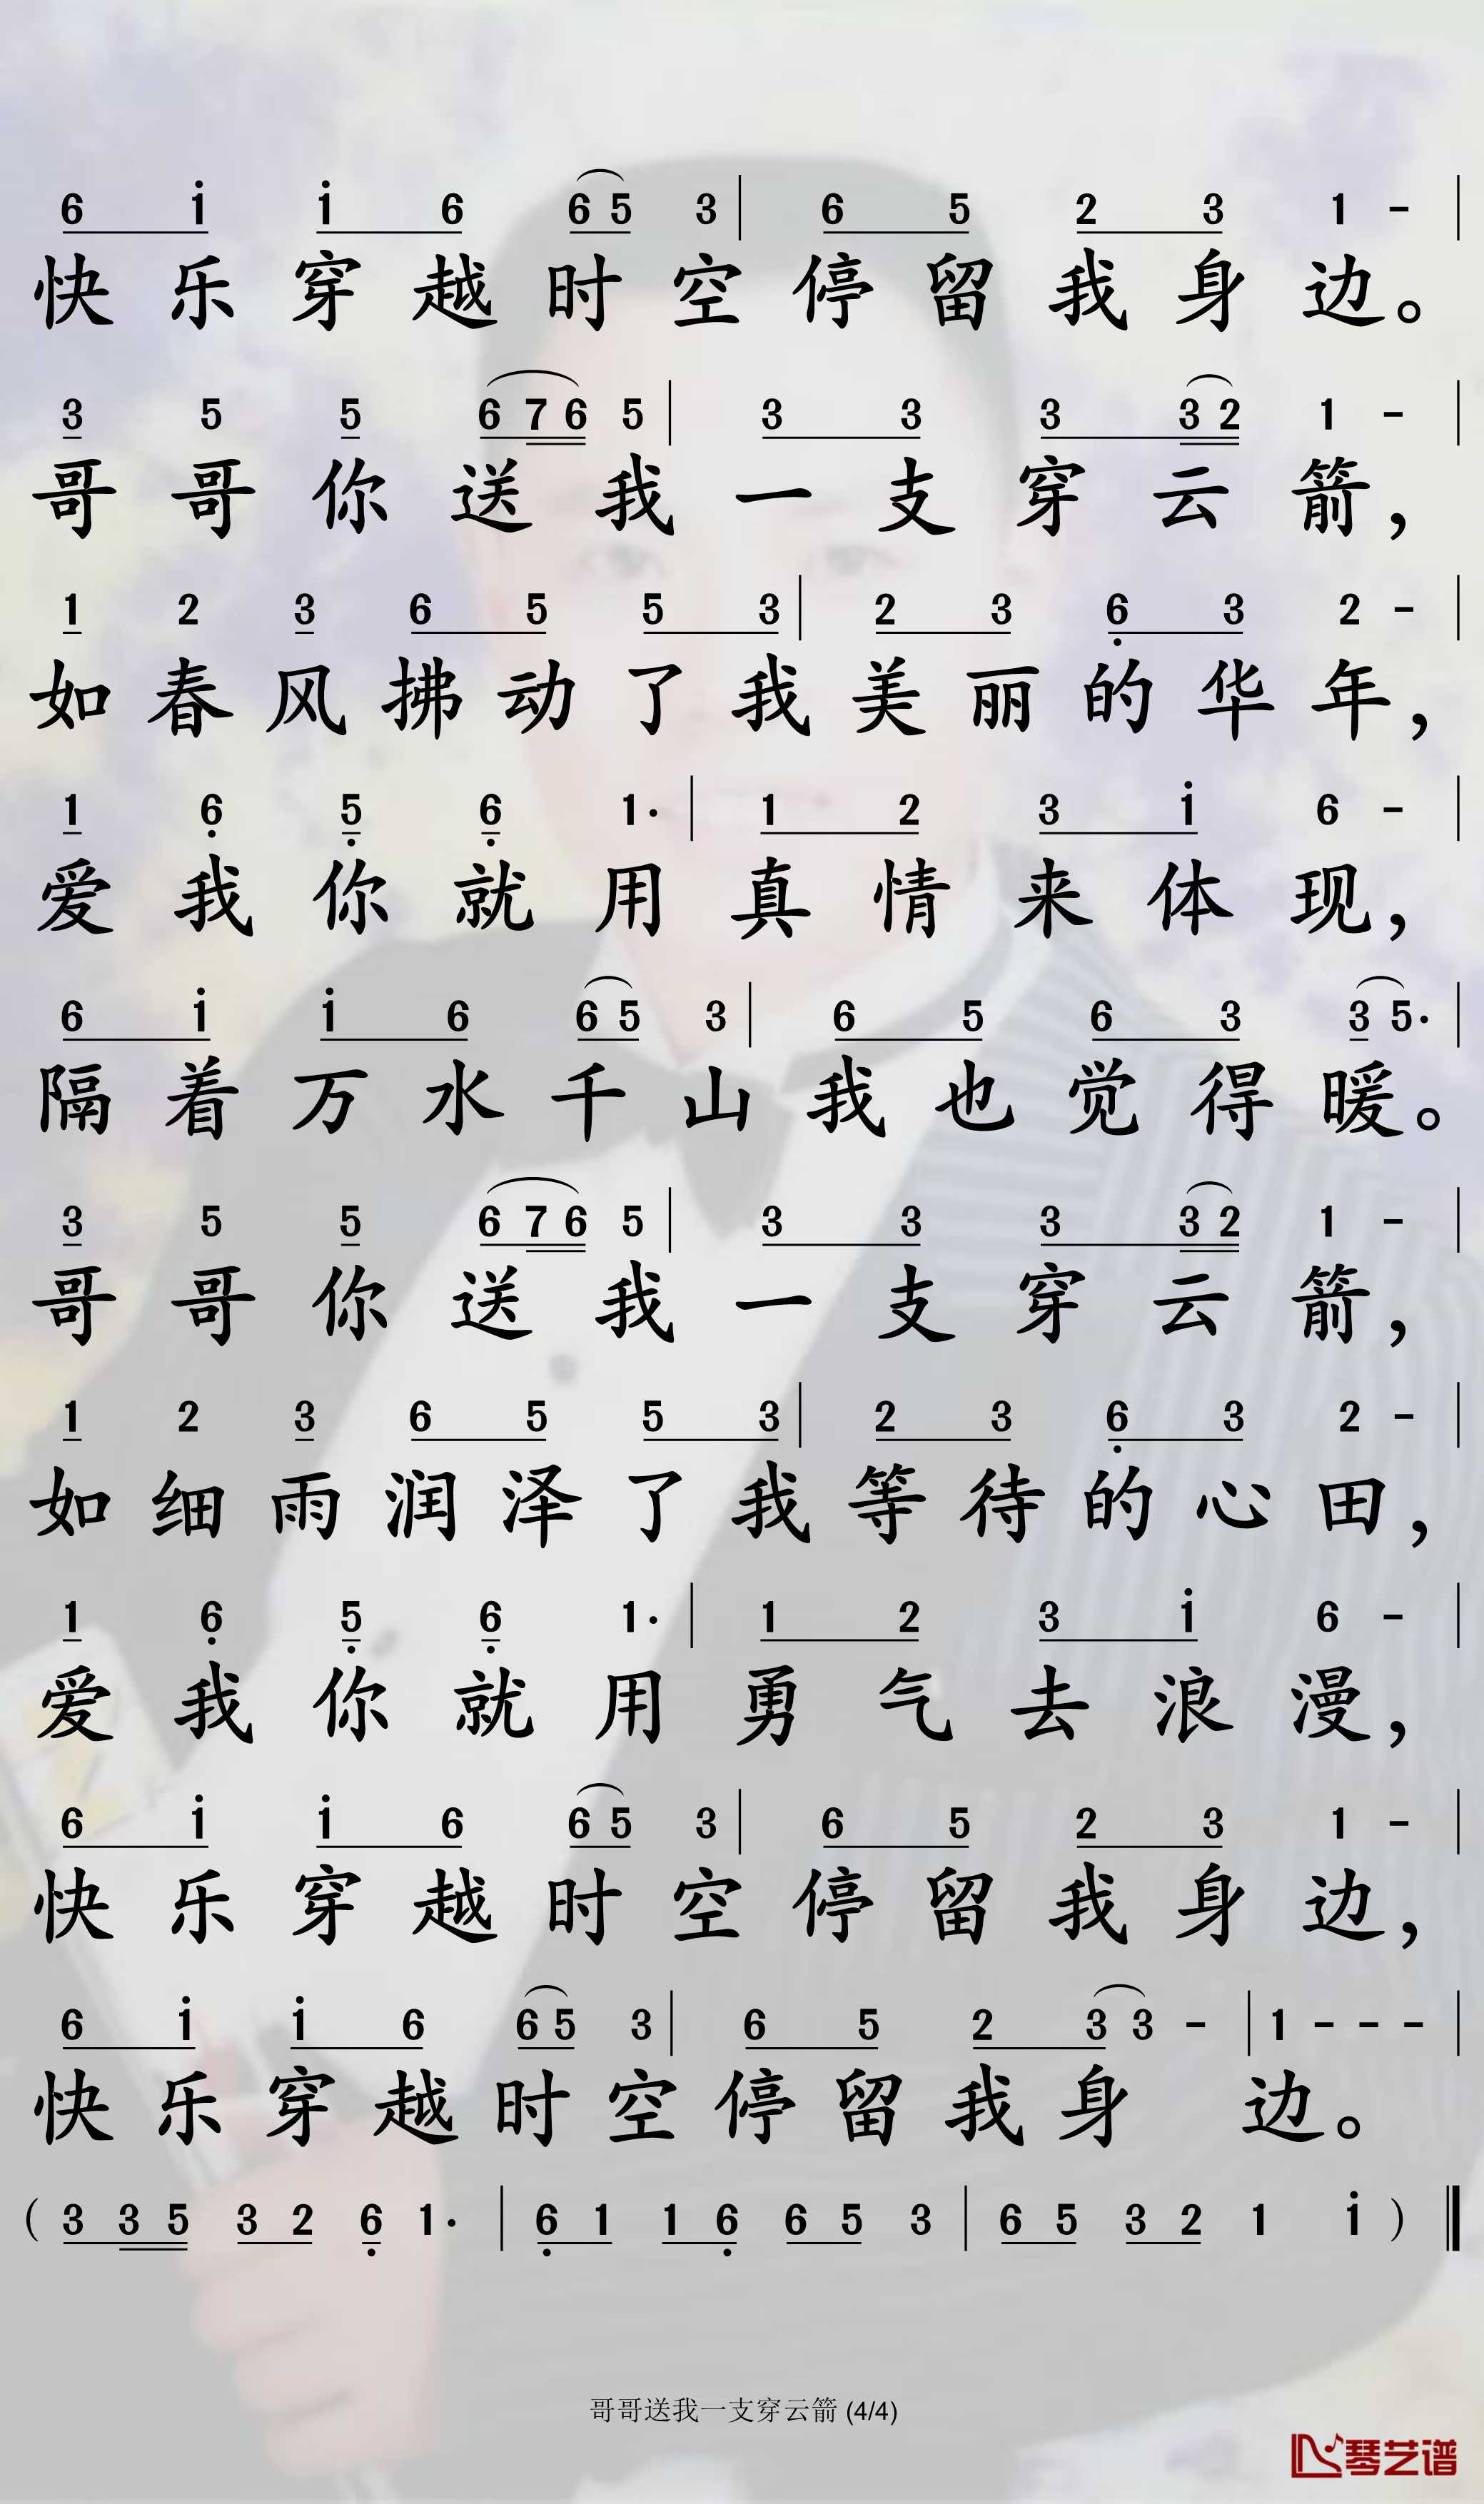 6 i i 6 6 5 3 | 6 5 2 3 1 - |
快乐穿越时空停留我身边。
3 5 5 6 7 6 5 | 3 3 3 3 2 1 - |
哥哥你送我一支穿云箭，
1 2 3 6 5 5 3 | 2 3 6̣ 3 2 - |
如春风拂动了我美丽的华年，
1 6̣ 5̣ 6̣ 1· | 1 2 3 i 6 - |
爱我你就用真情来体现，
6 i i 6 6 5 3 | 6 5 6 3 3 5· |
隔着万水千山我也觉得暖。
3 5 5 6 7 6 5 | 3 3 3 3 2 1 - |
哥哥你送我一支穿云箭，
1 2 3 6 5 5 3 | 2 3 6̣ 3 2 - |
如细雨润泽了我等待的心田，
1 6̣ 5̣ 6̣ 1· | 1 2 3 i 6 - |
爱我你就用勇气去浪漫，
6 i i 6 6 5 3 | 6 5 2 3 1 - |
快乐穿越时空停留我身边，
6 i i 6 6 5 3 | 6 5 2 3 3 - | 1 - - - |
快乐穿越时空停留我身边。
( 3 3 5 3 2 6̣ 1· | 6̣ 1 1 6̣ 6 5 3 | 6 5 3 2 1 i )
哥哥送我一支穿云箭 (4/4)
琴艺谱